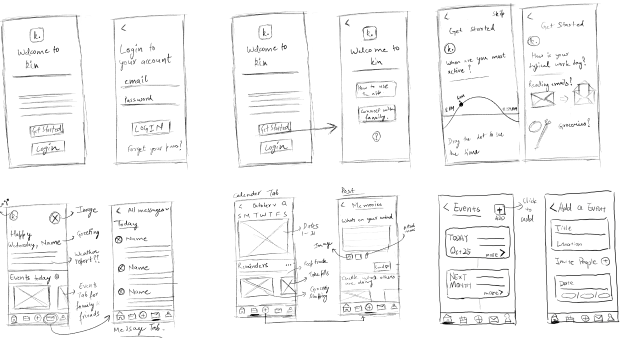 k.
Welcome to
kin
Get Started
Login
Login to
your account
email
password
LOGIN
Forgot your pass!
k.
Welcome to
kin
Get Started
Login
k.
Welcome to
kin
How to use
Connect with
family.
?
Skip
Get Started
k.
When are you most
active?
Drag the dot to set
the time
Get Started
k.
How is your
typical work day?
Reading emails?
Groceries?
Happy
Wednesday, Name
Events today
Image
Greeting
Weather
report??
Events
Tab for
family +
friends
All messages
Today
Name
Name
Name
Message Tab.
Calendar Tab
October
S M T W T F S
Reminders
Dates
1-31
Image
Grocery
Shopping
Post
Memories
What's on your mind
Events
ADD
Click
to
add
TODAY
Oct 25
MORE
NEXT
MONTH
MORE
Add a Event
Title
Location
Invite People
Date